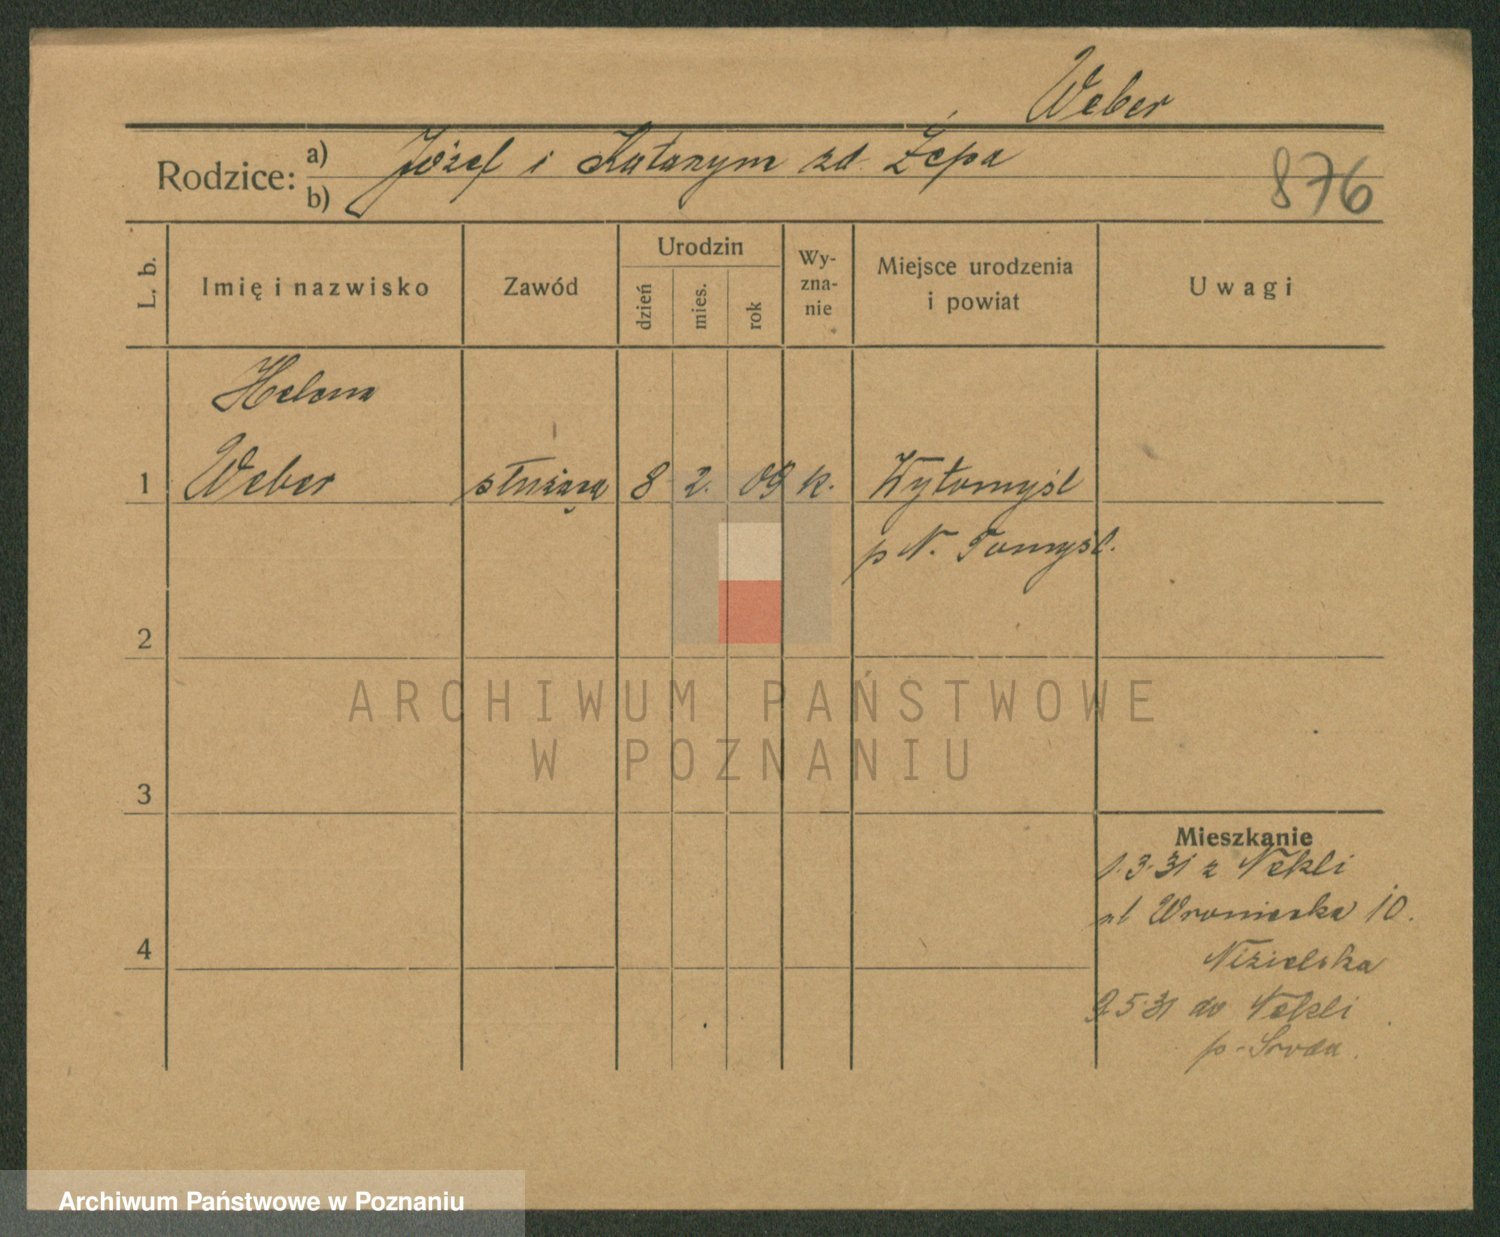 Weber
Rodzice: a) Józef i Katarzym zd. Żepa
b)
876
L. b.
Imię i nazwisko
Zawód
Urodzin
dzień
mies.
rok
Wy-
zna-
nie
Miejsce urodzenia
i powiat
Uwagi
Helena
1 Weber służąca 8 2. 09 k. Wytomyśl
p N. Tomyśl.
2
3
4
Mieszkanie
1.3.31 z Nekli
ul Wroniecka 10.
9.5.31 do Nekli
p. Sroda.
ARCHIWUM PAŃSTWOWE
W POZNANIU
Archiwum Państwowe w Poznaniu